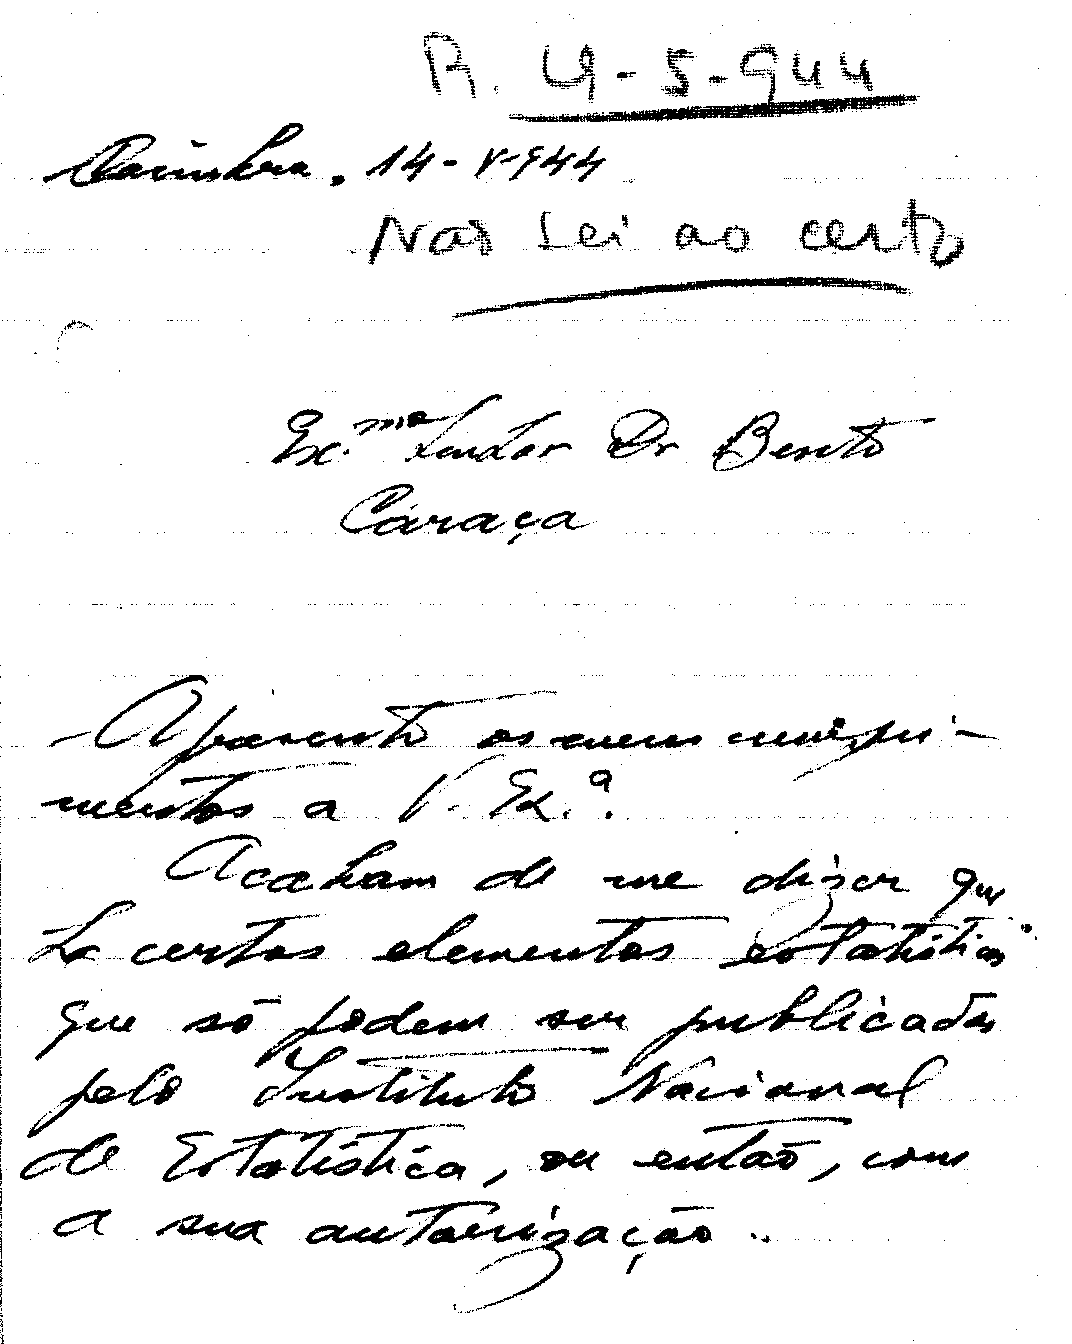 R. 19-5-944
Coimbra, 14-V-944
Não sei ao certo
Ex.mo Senhor Dr Bento
Caraça
Apresento os meus cumpri-
mentos a V. Ex.ª.
Acabam de me dizer que
ha certos elementos estatísticos
que só podem ser publicados
pelo Instituto Nacional
de Estatística, ou então, com
a sua autorização..